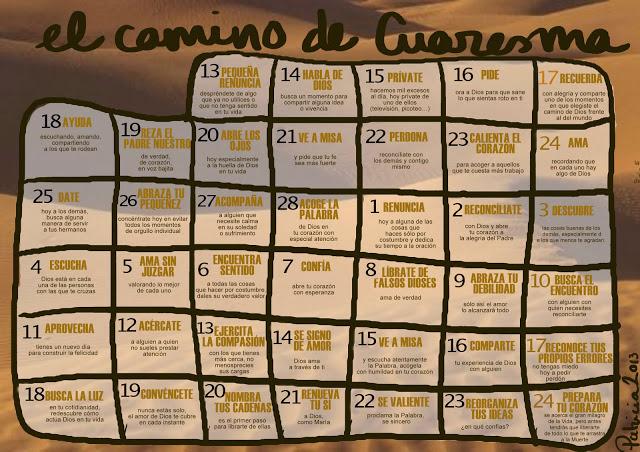 el camino de Cuaresma
13 PEQUEÑA
RENUNCIA
despréndete de algo
que ya no utilices o
que no tenga sentido
en tu vida
14 HABLA DE
DIOS
busca un momento para
compartir alguna idea
o vivencia
15 PRÍVATE
hacemos mil excesos
al día, hoy prívate
de uno de ellos
(televisión, picoteo...)
16 PIDE
ora a Dios para que sane
lo que sientas roto en ti
17 RECUERDA
con alegría y comparte
uno de los momentos
en que elegiste el
camino de Dios frente
al del mundo
18 AYUDA
escuchando, amando,
compartiendo
a los que te rodean
19 REZA EL
PADRE NUESTRO
de verdad,
de corazón,
en voz bajita
20 ABRE LOS
OJOS
hoy especialmente
a la huella de Dios
en tu vida
21 VE A MISA
y pide que tu fe
sea mas fuerte
22 PERDONA
reconcíliate con los
demás y contigo
mismo
23 CALIENTA EL
CORAZÓN
para acoger a aquellos
que te cuesta más trabajo
24 AMA
recordando que en
cada uno hay
algo de Dios
25 DATE
hoy a los demás,
busca alguna
manera de servir
a tus hermanos
26 ABRAZA TU
PEQUEÑEZ
concéntrate hoy en evitar
todos los momentos
de orgullo individual
27 ACOMPAÑA
a alguien que
necesite calma
en su soledad
o sufrimiento
28 ACOGE LA
PALABRA
de Dios en
tu corazón con
especial atención
1 RENUNCIA
hoy a alguna de las
cosas que haces
sólo por
costumbre y dedica
su tiempo a la oración
2 RECONCÍLIATE
con Dios y abre
tu corazón a
la alegría del Padre
3 DESCUBRE
las cosas buenas de los
demás, especialmente d
e los que menos te agradan
4 ESCUCHA
Dios está en cada
una de las personas
con las que te cruzas
5 AMA SIN
JUZGAR
valorando lo mejor
de cada uno
6 ENCUENTRA
SENTIDO
a todas las cosas
que hacer por costumbre
dales su verdadero valor
7 CONFÍA
abre tu corazón
con esperanza
8 LÍBRATE DE
FALSOS DIOSES
ama de verdad
9 ABRAZA TU
DEBILIDAD
sólo así el amor
lo alcanzará todo
10 BUSCA EL
ENCUENTRO
con alguien con
quien necesites
reconciliarte
11 APROVECHA
tienes un nuevo día
para construir la felicidad
12 ACÉRCATE
a alguien a quien
no sueles prestar
atención
13 EJERCITA
LA COMPASIÓN
con los que tienes
más cerca, no
menosprecies
sus cargas
14 SE SIGNO
DE AMOR
Dios ama
a través de ti
15 VE A MISA
y escucha atentamente
la Palabra, acógela
con humildad en tu corazón
16 COMPARTE
tu experiencia de Dios
con alguien
17 RECONOCE TUS
PROPIOS ERRORES
no tengas miedo
hoy a pedir
perdón
18 BUSCA LA LUZ
en tu cotidianidad,
redescubre cómo
actúa Dios en tu vida
19 CONVÉNCETE
nunca estás solo,
el amor de Dios te cubre
en cada instante
20 NOMBRA
TUS CADENAS
es el primer paso
para librarte de ellas
21 RENUEVA
TU SI
a Dios,
como María
22 SE VALIENTE
proclama la Palabra,
se sincero
23 REORGANIZA
TUS IDEAS
¿en qué confías?
24 PREPARA
TU CORAZÓN
se acerca el gran milagro
de la Vida, pero antes
tendrás que librarte
de todo lo que te arrastra
a la Muerte
Patricia 2013